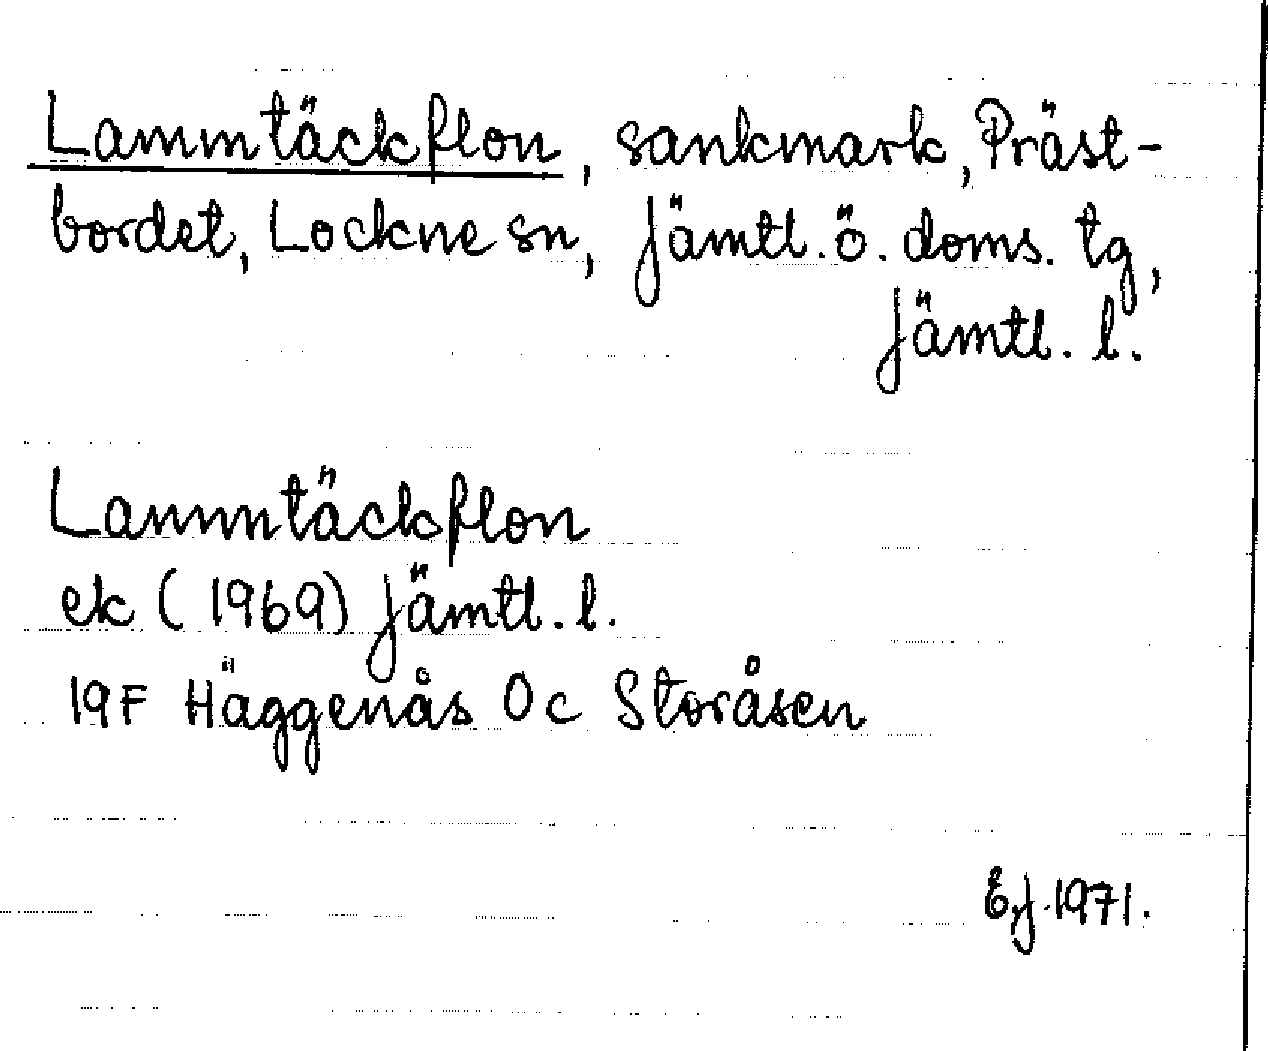 Lammtäckflon, sankmark, Präst-
bordet, Lockne sn, Jämtl. ö. doms. tg,
Jämtl. l.
Lammtäckflon
ek (1969) Jämtl. l.
19F Häggenås 0c Storåsen
EJ 1971.